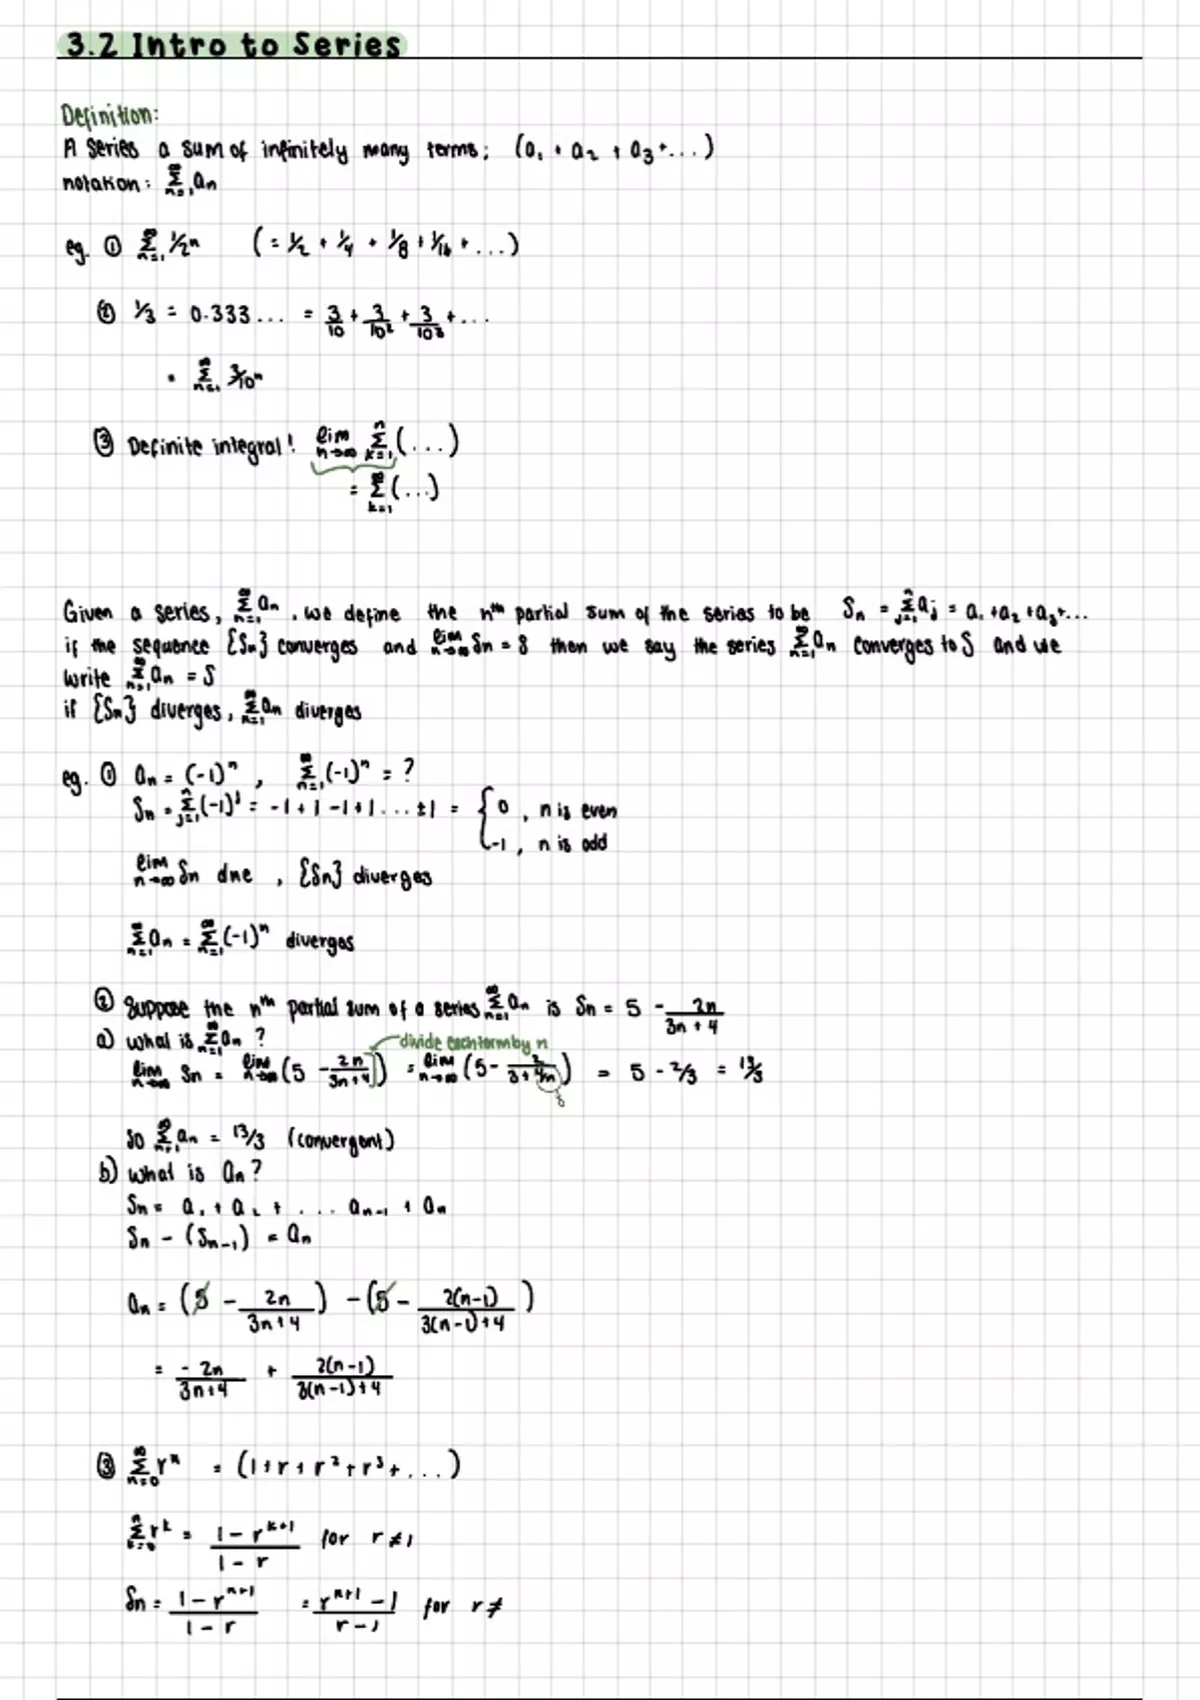 3.2 Intro to Series
Definition:
A series a sum of infinitely many terms; (a₁ + a₂ + a₃ + ...)
notation: ∑_{n=1}^∞ aₙ
eg. ① ∑_{n=1}^∞ 1/2ⁿ (= 1/2 + 1/4 + 1/8 + 1/16 + ...)
② 1/3 = 0.333... = 3/10 + 3/10² + 3/10³ + ...
= ∑_{n=1}^∞ 3/10ⁿ
③ Definite integral! lim_{n→∞} ∑_{k=1}^n (...)
= ∑_{k=1}^∞ (...)
Given a series, ∑_{n=1}^∞ aₙ, we define the nᵗʰ partial sum of the series to be Sₙ = ∑_{j=1}^n aⱼ = a₁ + a₂ + a₃ + ...
if the sequence {Sₙ} converges and lim_{n→∞} Sₙ = S then we say the series ∑_{n=1}^∞ aₙ converges to S and we
write ∑_{n=1}^∞ aₙ = S
if {Sₙ} diverges, ∑_{n=1}^∞ aₙ diverges
eg. ① aₙ = (-1)ⁿ, ∑_{n=1}^∞ (-1)ⁿ = ?
Sₙ = ∑_{j=1}^n (-1)ʲ = -1 + 1 - 1 + 1 ... ±1 = { 0, n is even
-1, n is odd
lim_{n→∞} Sₙ dne, {Sₙ} diverges
∑_{n=1}^∞ aₙ = ∑_{n=1}^∞ (-1)ⁿ diverges
② Suppose the nᵗʰ partial sum of a series ∑_{n=1}^∞ aₙ is Sₙ = 5 - 2n/(3n + 4)
a) what is ∑_{n=1}^∞ aₙ ?
divide each term by n
lim_{n→∞} Sₙ = lim_{n→∞} (5 - 2n/(3n+4)) = lim_{n→∞} (5 - 2/(3 + 4/n)) = 5 - 2/3 = 13/3
so ∑_{n=1}^∞ aₙ = 13/3 (convergent)
b) what is aₙ?
Sₙ = a₁ + a₂ + ... aₙ₋₁ + aₙ
Sₙ - (Sₙ₋₁) = aₙ
aₙ = (5 - 2n/(3n+4)) - (5 - 2(n-1)/(3(n-1)+4))
= -2n/(3n+4) + 2(n-1)/(3(n-1)+4)
③ ∑_{n=0}^∞ rⁿ = (1 + r + r² + r³ + ...)
∑_{k=0}^n rᵏ = (1 - r^{k+1})/(1 - r) for r ≠ 1
Sₙ = (1 - r^{n+1})/(1 - r) = (r^{n+1} - 1)/(r - 1) for r ≠